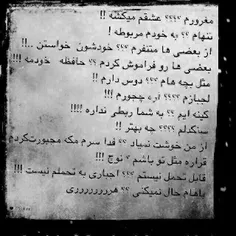 مغرورم ؟؟؟؟ عشقم میکشه !!
تنهام ؟؟ به خودم مربوطه !
از بعضی ها متنفرم ؟؟؟ خودشون خواستن ..!!
بعضی ها رو فراموش کردم ؟؟ حافظه خودمه !!!!
مثل بچه هام ؟؟؟ دوس دارم !!
لجبازم ؟؟؟؟ اره ججورم !!!
کینه ایم ؟؟ به شما ربطی نداره !!!!
سنگدلم ؟؟؟؟ چه بهتر !!
از من خوشت نمیاد ؟؟ فدا سرم مگه مجبورت کردم
قراره مثل تو باشم ؟ نوچ !!!
قابل تحمل نیستم ؟؟؟ اجباری به تحملم نیست !!!
باهام حال نمیکنی ؟؟ هررررررررری